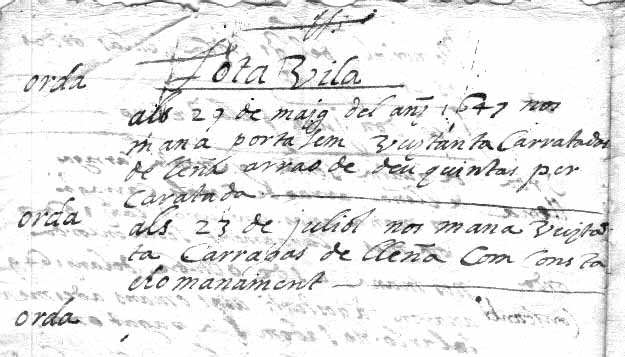 orda Jota Vila
als 29 de maig del añy 1647 nos
mana portasem Vuitanta Carratadas
de lleña arrao de deu quintas per
Caratada
orda als 23 de juliol nos mana Vuyta
ta Carradas de lleña Com Consta
elo manament
orda